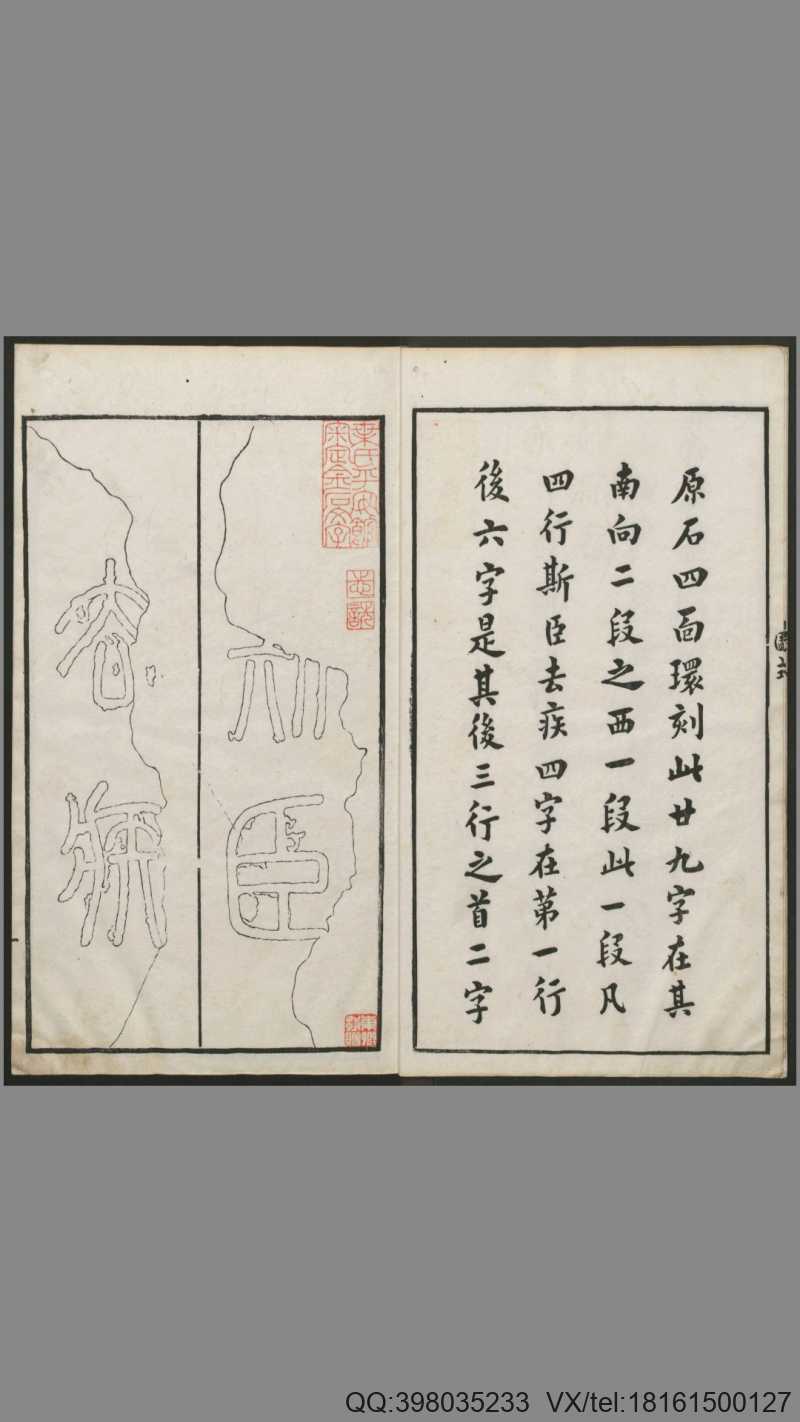 原石四面環刻此廿九字在其
南向二段之西一段此一段凡
四行斯臣去疾四字在第一行
後六字是其後三行之首二字
葉氏平安館
審定金石字
志詵
斯臣
去疾
QQ:398035233 VX/tel:18161500127